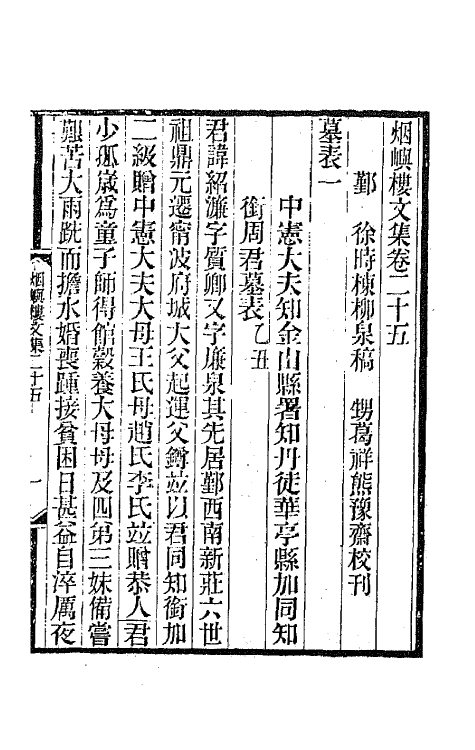 烟嶼樓文集卷二十五
鄞　徐時棟柳泉稿　甥葛祥熊豫齋校刊
墓表一
中憲大夫知金山縣署知丹徒華亭縣加同知
銜周君墓表乙丑
君諱紹濂字質卿又字廉泉其先居鄞西南新莊六世
祖鼎元遷甯波府城大父起運父鏄竝以君同知銜加
二級贈中憲大夫大母王氏母趙氏李氏竝贈恭人君
少孤歲爲童子師得館穀養大母母及四弟三妹備嘗
艱苦大雨跣而擔水婚喪踵接貧困日甚益自淬厲夜
烟嶼樓文集二十五
一